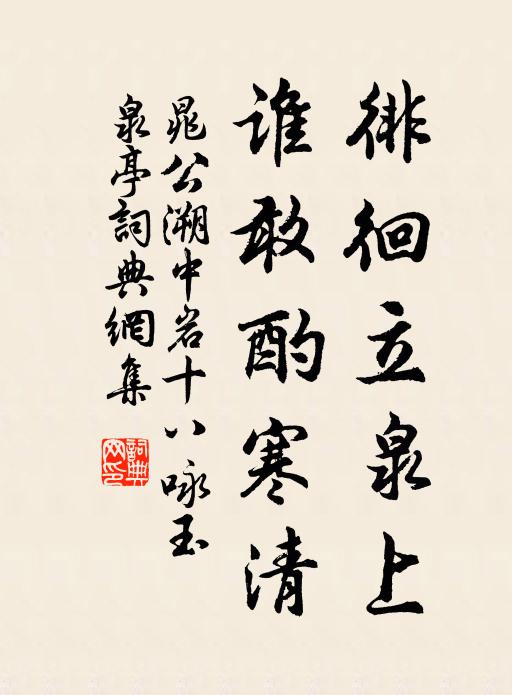 徘徊立泉上
誰敢酌寒清
晁公溯中岩十八咏玉
泉亭詞典網集
詞典網印